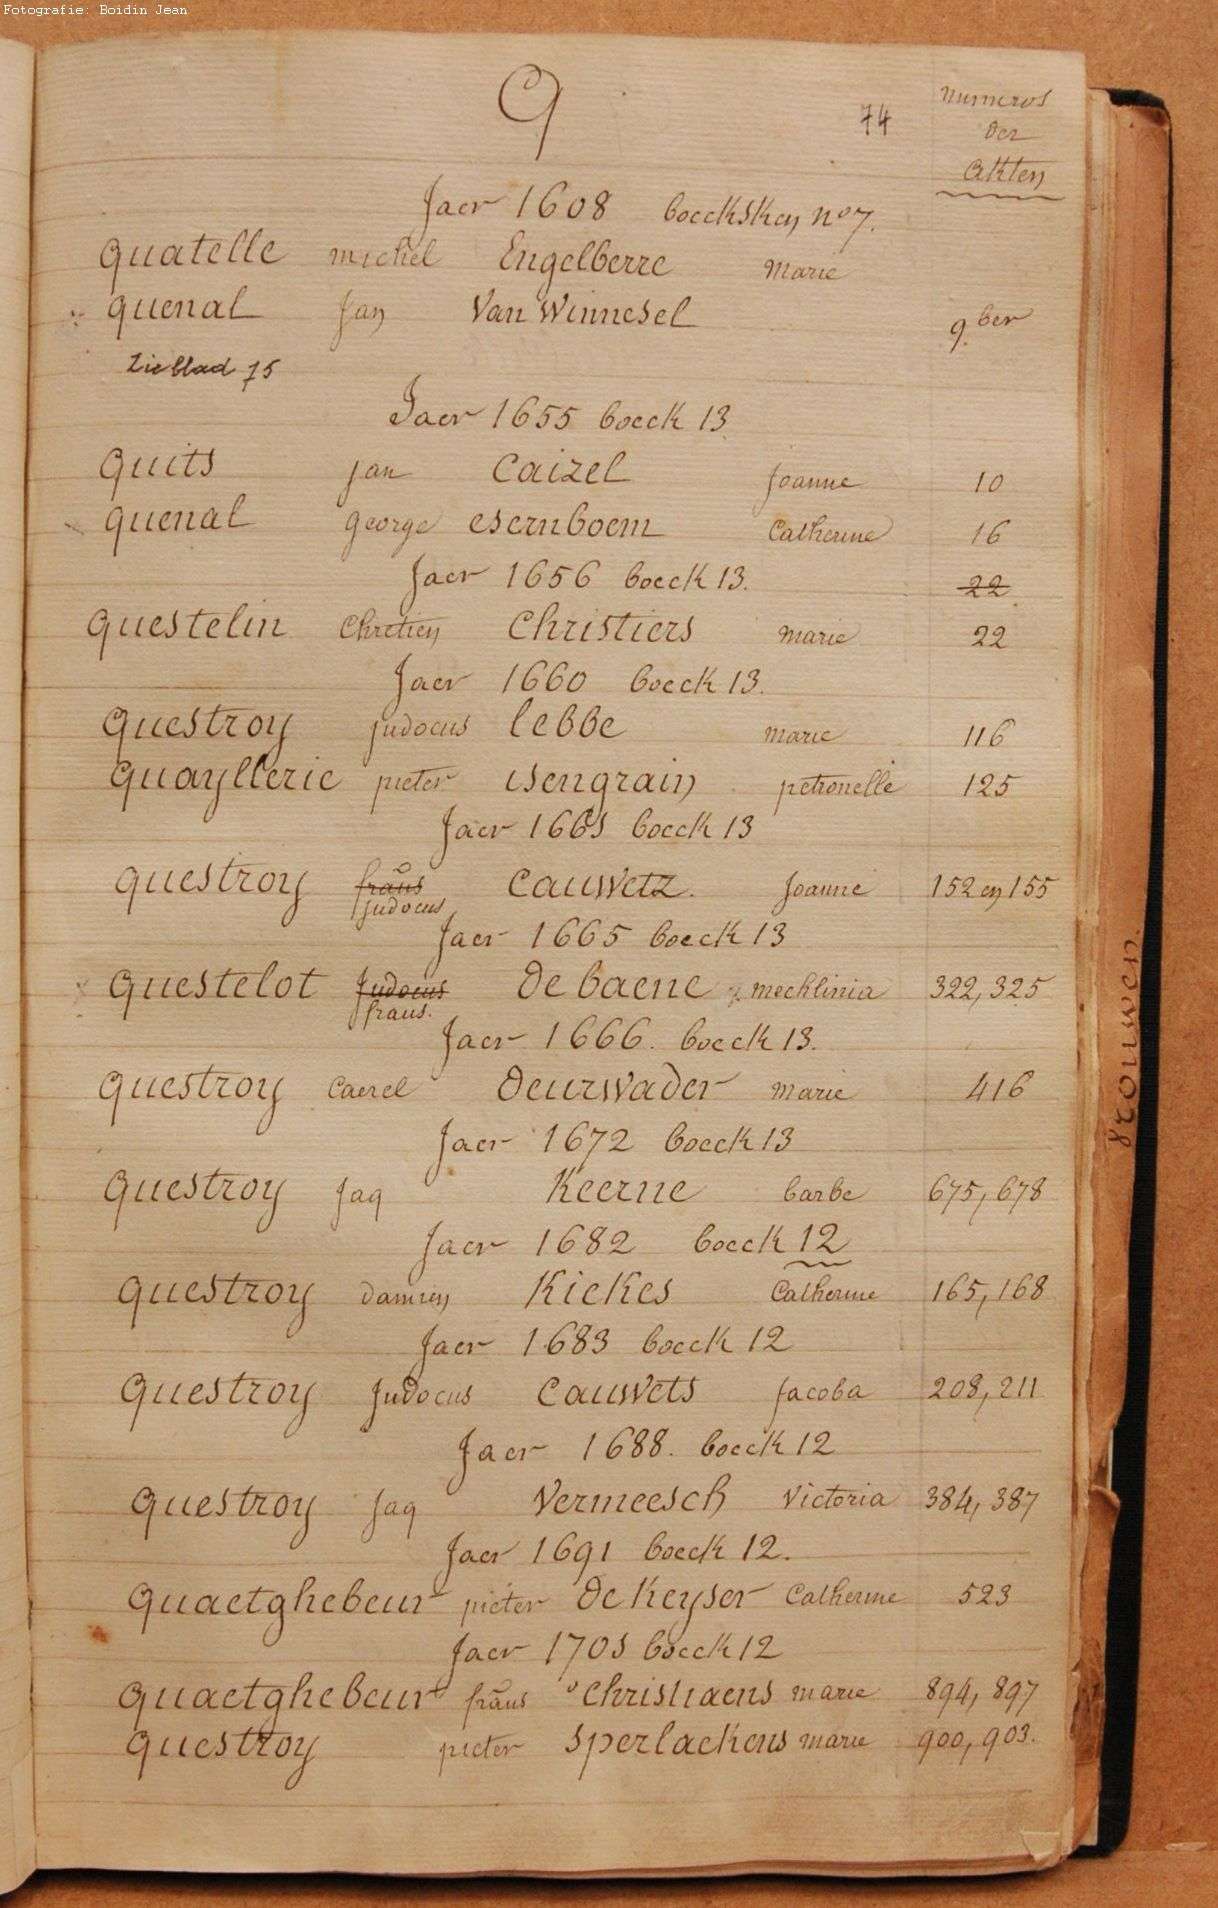 Fotografie: Boidin Jean
Q
74
numeros
der
akten
Jaer 1608 boecksken no 7.
quatelle michel Engelberre marie
quenal Jan Van Winnesel 9ber
Zie blad 75
Jaer 1655 boeck 13
quits jan Caizel joanne 10
quenal george esernboem Catherine 16
Jaer 1656 boeck 13. 22
questelin Chretien Christiers marie 22
Jaer 1660 boeck 13.
questroy judocus lebbe marie 116
quayllerie pieter isengrain petronelle 125
Jaer 1661 boeck 13
questroy fraus cauwetz. Joanne 152 en 155
judocus
Jaer 1665 boeck 13
questelot Judocus De baene mechlinia 322, 325
fraus.
Jaer 1666. boeck 13.
questroy Caerel Deurwader marie 416
Jaer 1672 boeck 13
questroy Jaq Keerne barbe 675, 678
Jaer 1682 boeck 12
questroy damien Kickes Catherine 165, 168
Jaer 1683 boeck 12
questroy Judocus Cauwets Jacoba 208, 211
Jaer 1688. boeck 12
questroy Jaq Vermeesch Victoria 384, 387
Jaer 1691 boeck 12.
quaetghebeur pieter De Keyser Catherine 523
Jaer 1701 boeck 12
quaetghebeur fraus Christiaens marie 894, 897
questroy pieter sperlackens marie 900, 903.
vrouwen.